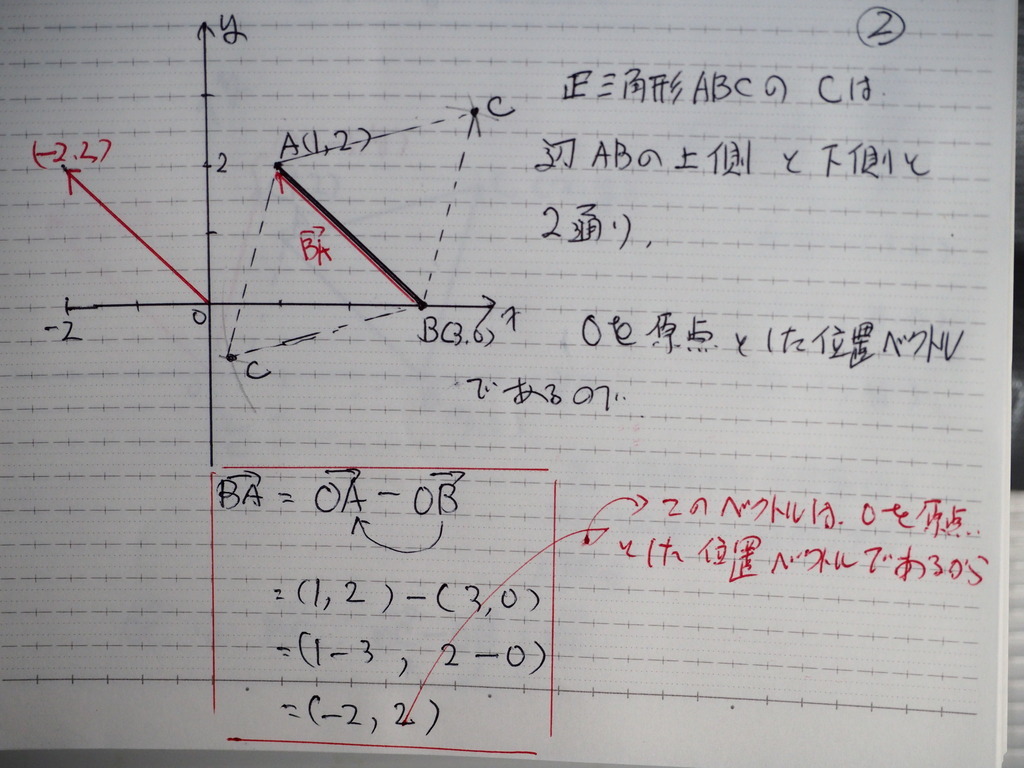 ②
y
正三角形ABCの Cは
辺ABの上側と下側と
2通り,
C
A(1,2)
(-2,2)
2
BA
-2
0
B(3,0)
x
C
Oを原点とした位置ベクトル
であるので
BA = OA - OB
=(1,2)-(3,0)
=(1-3, 2-0)
=(-2,2)
このベクトルは、Oを原点
とした位置ベクトルであるから